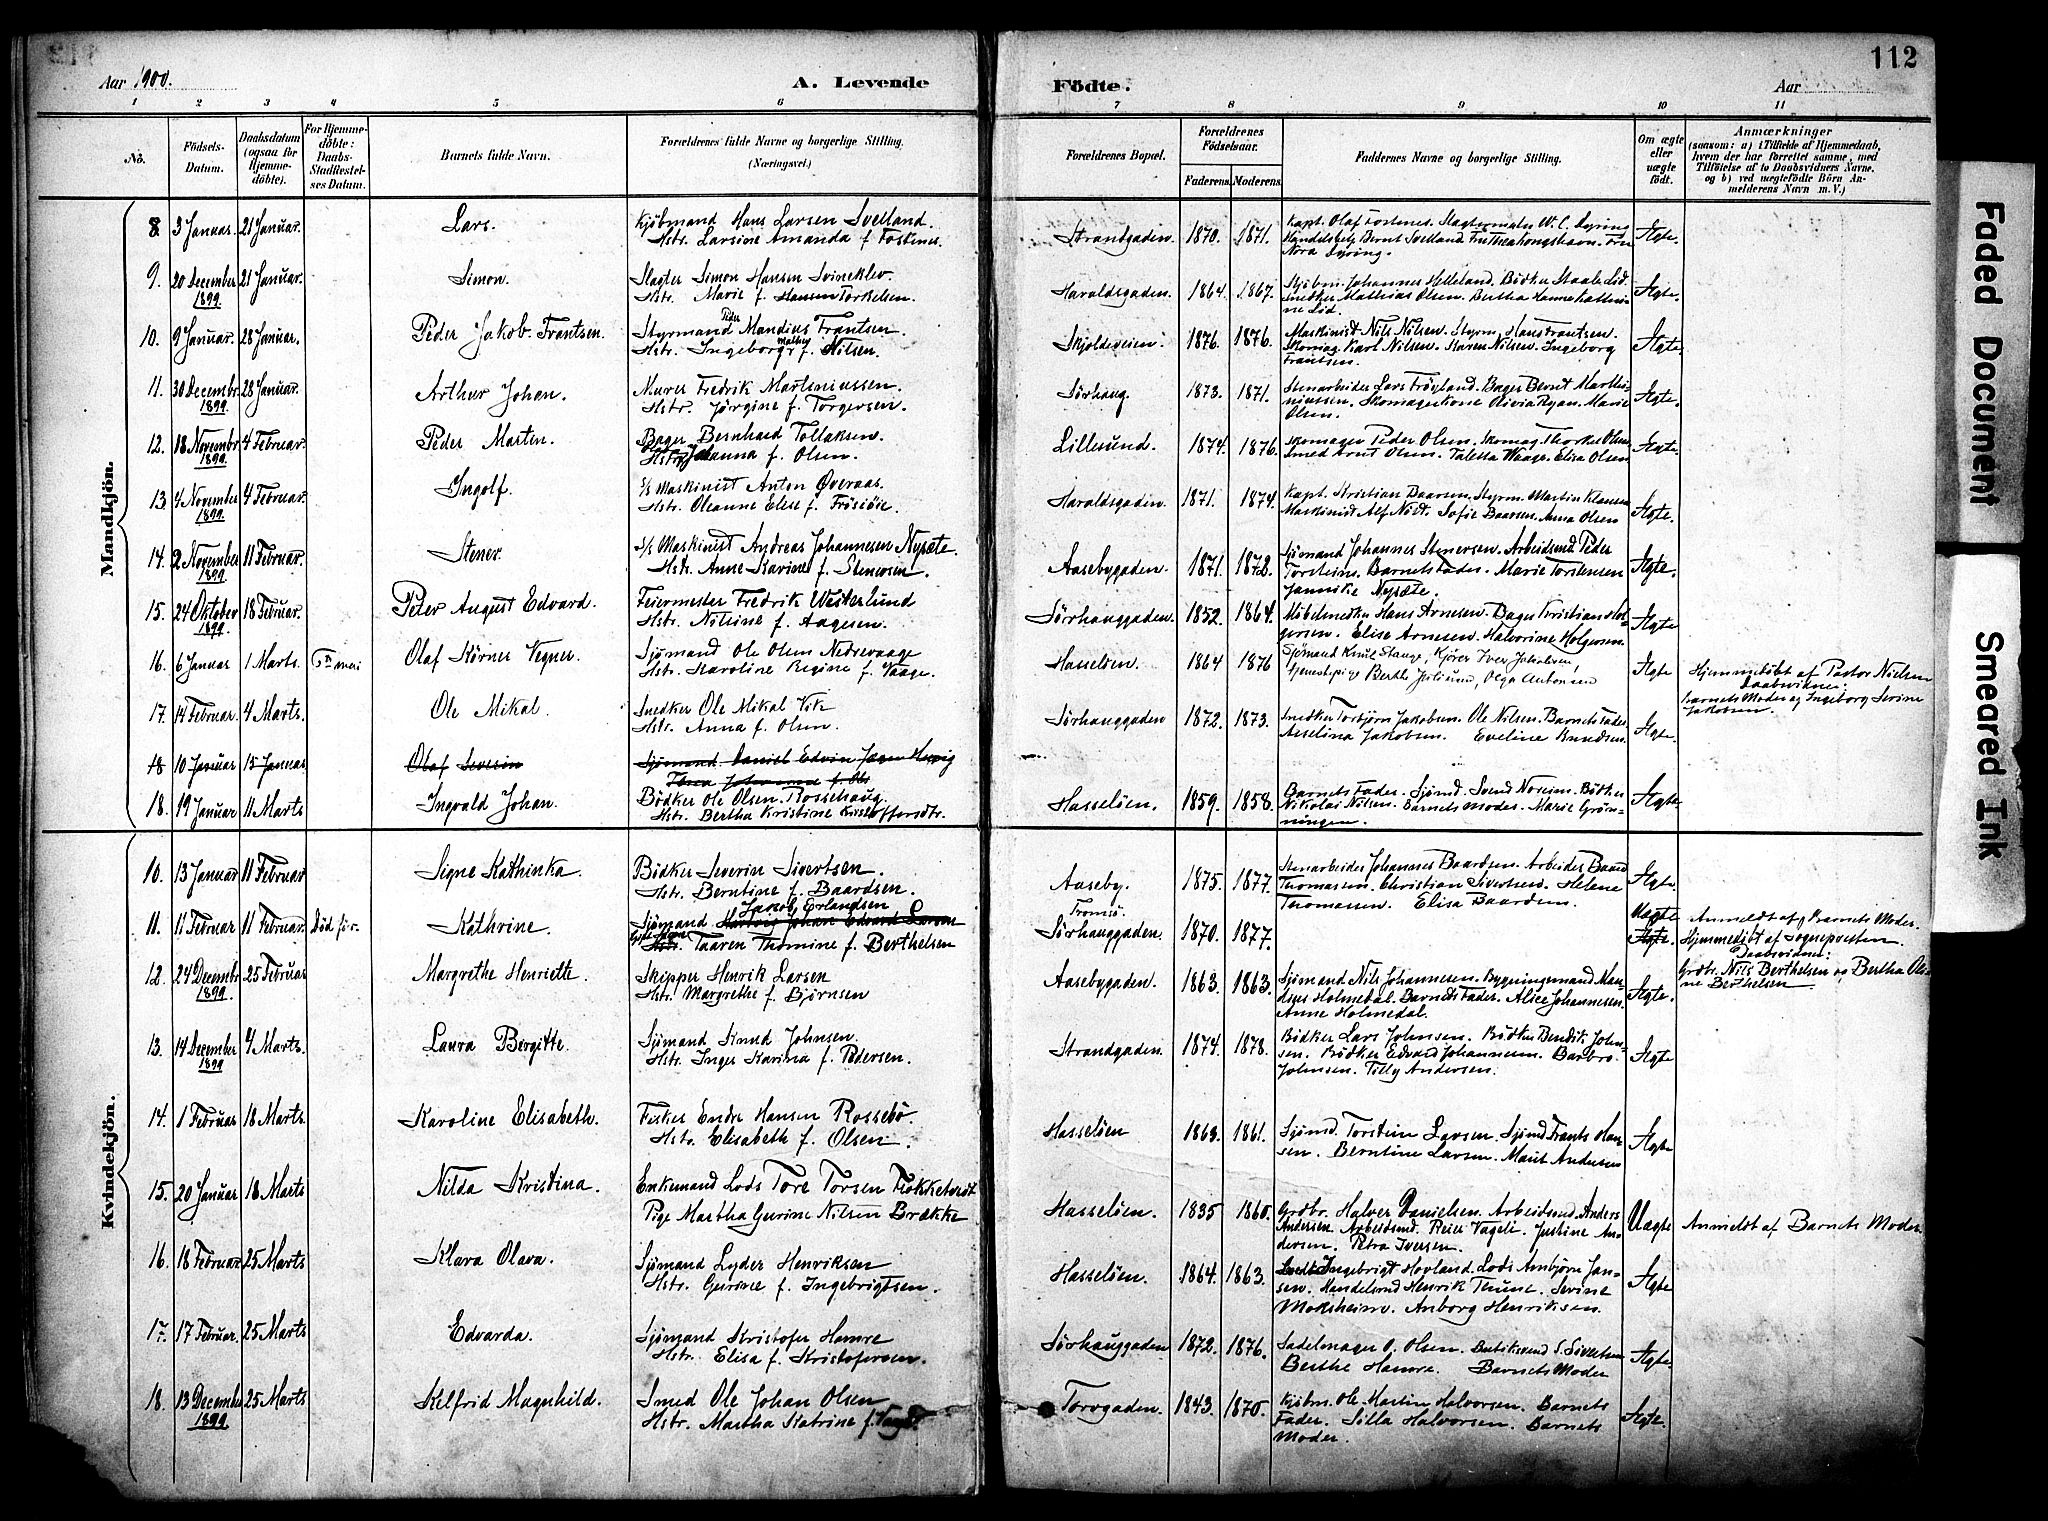 112
Aar 1900.
A. Levende Födte.
Aar
1 2 3 4 5 6 7 8 9 10 11
No.
Födsels-Datum.
Daabsdatum (ogsaa for Hjemme-döbte).
For Hjemme-döbte: Daabs-Stadfæstel-ses Datum.
Barnets fulde Navn.
Forældrenes fulde Navne og borgerlige Stilling. (Næringsvei.)
Forældrenes Bopæl.
Forældrenes Födselsaar.
Faderens. Moderens.
Faddernes Navne og borgerlige Stilling.
Om ægte eller uægte födt.
Anmærkninger
(saasom: a) i Tilfælde af Hjemmedaab, hvem der har forrettet samme, med Tilföielse af to Daabsvidners Navne, og b) ved uægtefödte Börn An-melderens Navn m. V.)
Mandkjön.
8. 3 Januar. 21 Januar. Lars. Kjöbmand Hans Larsen Svelland.
Hstr. Larsine Amanda f. Fostenes
Strandgaden. 1870. 1871. Kapt. Olaf Fostenes. Slagtermester W. C. Dyring
Nora Dyring. Ægte.
9. 20 December 1899. 21 Januar. Simon. Slagter Simon Hansen Svineklev
Hstr. Marie f. Hansen Torkelsen.
Haraldsgaden. 1864. 1867. Kjöbm. Johannes Helleland. Bödker Staale Lid.
Snedker Mathias Olsen. Bertha Hanne Kathri-
ne Lid. Ægte.
10. 9 Januar. 28 Januar. Peder Jakob Frantsen. Styrmand Peder Mandius Frantsen.
Hstr. Ingeborg f. Nilsen.
Skjoldeveien. 1876. 1876. Maskinist Nils Nilsen. Styrm. Hans Frantsen.
Skomag. Karl Nilsen. Karen Nilsen. Ingeborg
Frantsen. Ægte.
11. 30 Decembr. 1899. 28 Januar. Arthur Johan. Murer Fredrik Martheniussen.
Hstr. Jörgine f. Torgersen.
Sörhaug. 1873. 1871. Stenarbeider Lars Fröyland. Bager Bernt Marthe-
niussen. Skomagerkone Olivia Ryan. Marie
Olsen. Ægte.
12. 18 Novembr. 1899. 4 Februar. Peder Martin. Bager Bernhard Tollaksen.
Hstr. Johanna f. Olsen.
Lillesund. 1874. 1876. Skomager Peder Olsen. Skomag. Thorkel Olsen.
Smed Arnt Olsen. Taletta Waage. Elisa Olsen Ægte.
13. 4 November 1899. 4 Februar. Ingolf. S/s Maskinist Anton Överaas.
Hstr. Oleanne Elise f. Frösöie.
Haraldsgaden. 1871. 1874. Kapt. Kristian Baarsen. Styrm. Martin Klausen
Maskinist Alf Nöst. Sofie Baarsen. Anna Olsen Ægte.
14. 2 November 1899. 11 Februar. Stener. S/s Maskinist Andreas Johannesen Nysæte.
Hstr. Anne Karine f. Stenersen.
Aasebygaden. 1871. 1872. Sjömand Johannes Stenersen. Arbeidsmd. Peder
Torstein. Barnets Fader. Marie Torstensen
Jannike Nysæte. Ægte.
15. 24 Oktober 1899. 18 Februar. Peter August Edvard. Feiermester Fredrik Westerlund
Hstr. Nilsine f. Aagesen.
Sörhauggaden. 1852. 1864. Möbelsnedker Hans Arnesen. Bager Kristian Hol-
gersen. Elise Arnesen. Halvorine Holgersen. Ægte
16. 6 Januar 1 Marts. Olaf Körner Vegner. Sjömand Ole Olsen Nedrevaage
Hstr. Karoline Regine f. Vaage.
Hasselöen. 1864 1876 Sjömand Knut Stange, Kjörer Iver Jakobsen,
Tjenestepige Berthe Juliussen, Olga Antonsen Ægte
Hjemmedöbt af Pastor Nielsen
Daabsvidner:
barnets Moder og Ingeborg Serine
Jakobsen.
17. 14 Februar. 4 Marts. Ole Mikal. Snedker Ole Mikal Vik
Hstr. Anna f. Olsen.
Sörhauggaden 1872. 1873. Snedker Torbjörn Jakobsen. Ole Nilsen. Barnets Fader.
Asselina Jakobsen. Eveline Knudsen. Ægte.
18 10 Januar 15 Januar Olaf Severin Sjömand Daniel Edvin
18. 19 Januar 11 Marts Ingvald Johan. Bödker Ole Olsen Rossehaug.
Hstr. Bertha Kristine Kristoffersdtr.
Hasselöen. 1859. 1858. Barnets Fader. Sjömd. Svend Noreim. Bödker
Nikolai Nilsen. Barnets Moder. Marie Grön-
ningen. Ægte
Kvindekjön.
10. 13 Januar 11 Februar Signe Kathinka. Bödker Severin Sivertsen.
Hstr. Berntine f. Baardsen.
Aaseby. 1875. 1877. Stenarbeider Johannes Baardsen. Arbeider Baard
Thomassen. Christian Sivertsen. Helene
Thomassen. Elisa Baardsen. Ægte.
11. 11 Februar 11 Februar. Död för. Kathrine. Jakob Erlandsen
Sjömand Hartvig Johan Edvard Larsen
Hstr. Taaren Thomine f. Berthelsen
Tromsö.
Sörhauggaden. 1870. 1877. Uægte
Ægte.
Anmeldt af Barnets Moder.
Hjemmedöbt af Sognepresten
Daabsvidner:
Grdbr. Nils Berthelsen og Bertha Oli-
ne Berthelsen
12. 24 Decembr. 1899. 25 Februar Margrethe Henriette. Skipper Henrik Larsen
Hstr. Margrethe f. Björnsen
Aasebygaden. 1863. 1863. Sjömand Nils Johannesen. Bygningsmand Man-
dius Holmedal. Barnets Fader. Alice Johannesen.
Anne Holmedal. Ægte.
13. 14 December 1899 4 Marts. Laura Bergitte. Sjömand Knud Johnsen.
Hstr. Inger Karina f. Pedersen.
Strandgaden. 1874. 1878. Bödker Lars Johnsen. Bödker Bendik John-
sen. Bödker Edvard Johannesen. Barbro
Johnsen. Tilly Andersen. Ægte
14. 1 Februar 18 Marts. Karoline Elisabeth. Fisker Endre Hansen Rossebö
Hstr. Elisabeth f. Olsen.
Hasselöen 1863. 1861. Sjömd. Torstein Larsen. Sjömd. Frants Han-
sen. Berntine Larsen. Marit Andersen Ægte
15. 20 Januar 18 Marts Nilda Kristina. Enkemand Lods Tore Torsen Trækketveit
Pige Martha Gurine Nilsen Brække
Hasselöen. 1835 1860. Grdbr. Halvor Danielsen. Arbeidsmd. Anders
Andersen Arbeidsmd. Reier Vageli. Justine An-
dersen. Petra Iversen. Uægte Anmeldt af Barnets Moder
16. 18 Februar 25 Marts Klara Olava. Sjömand Lyder Henriksen
Hstr. Gurine f. Ingebrigtsen.
Hasselöen. 1864. 1863. Ingebrigt Hovland. Lods Arnbjörn Jan-
sen. Handelsmd. Henrik Thune. Serine
Moksheim. Anborg Henriksen. Ægte
17. 17 Februar. 25 Marts Edvarda. Sjömand Kristofer Hamre
Hstr. Elisa f. Kristofersen.
Sörhauggaden 1872. 1876. Sadelmager O. Olsen. Butiksvend S. Sivertsen
Berthe Hamre. Barnets Moder Ægte
18. 13 December 1899 25 Marts Kelfrid Magnhild. Smed Ole Johan Olsen
Hstr. Martha Katrine f.
Torvgaden. 1843. 1870. Kjöbm. Ole Martin Halvorsen. Barnets
Fader. Silla Halvorsen. Barnets
Moder. Ægte.
Faded Document
Smeared Ink